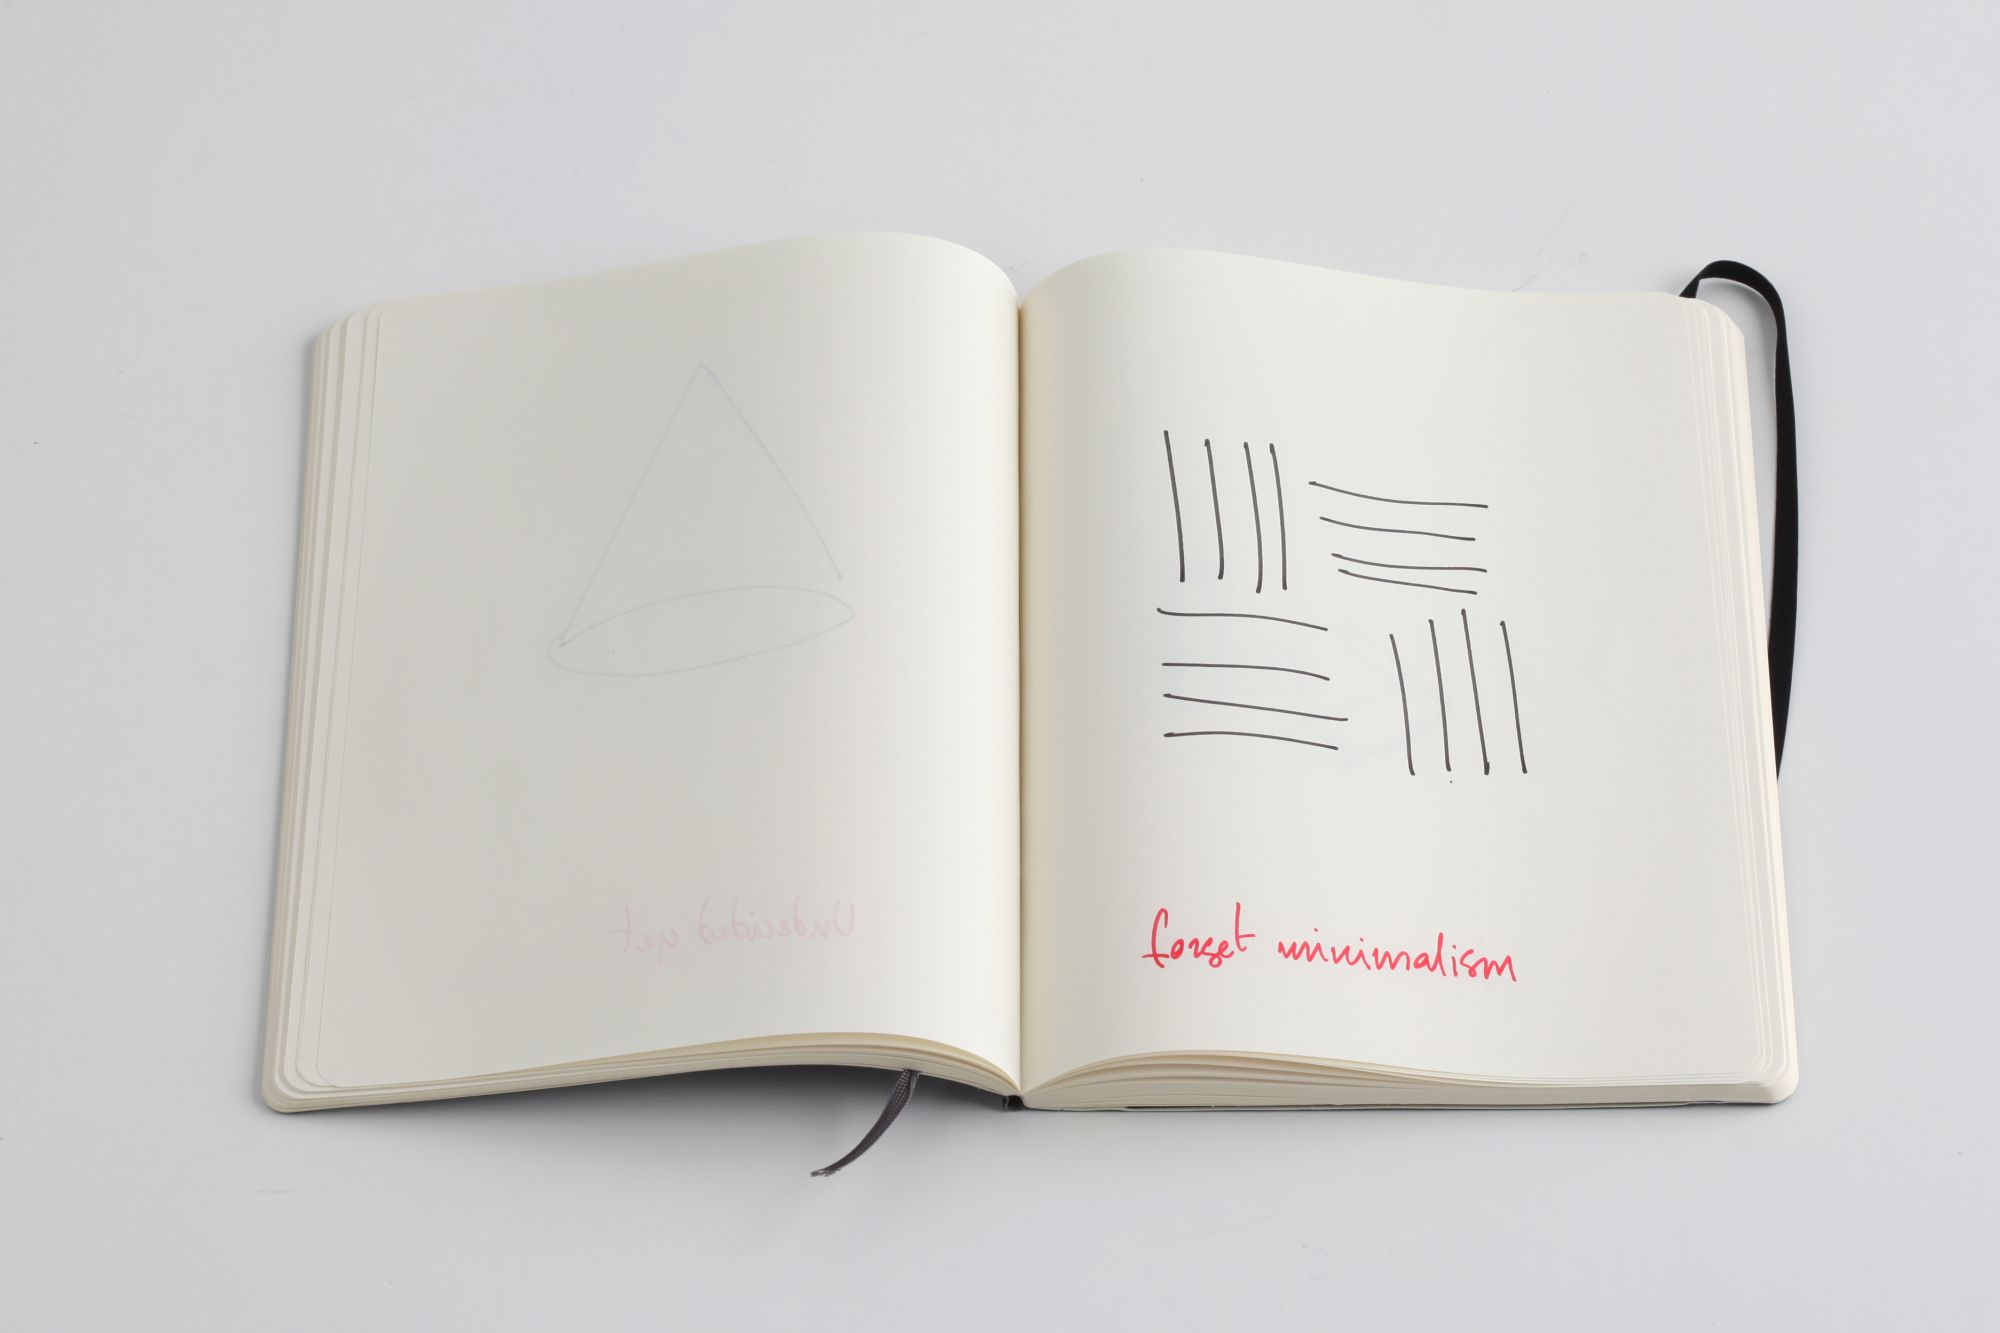 Undecided yet
forget minimalism